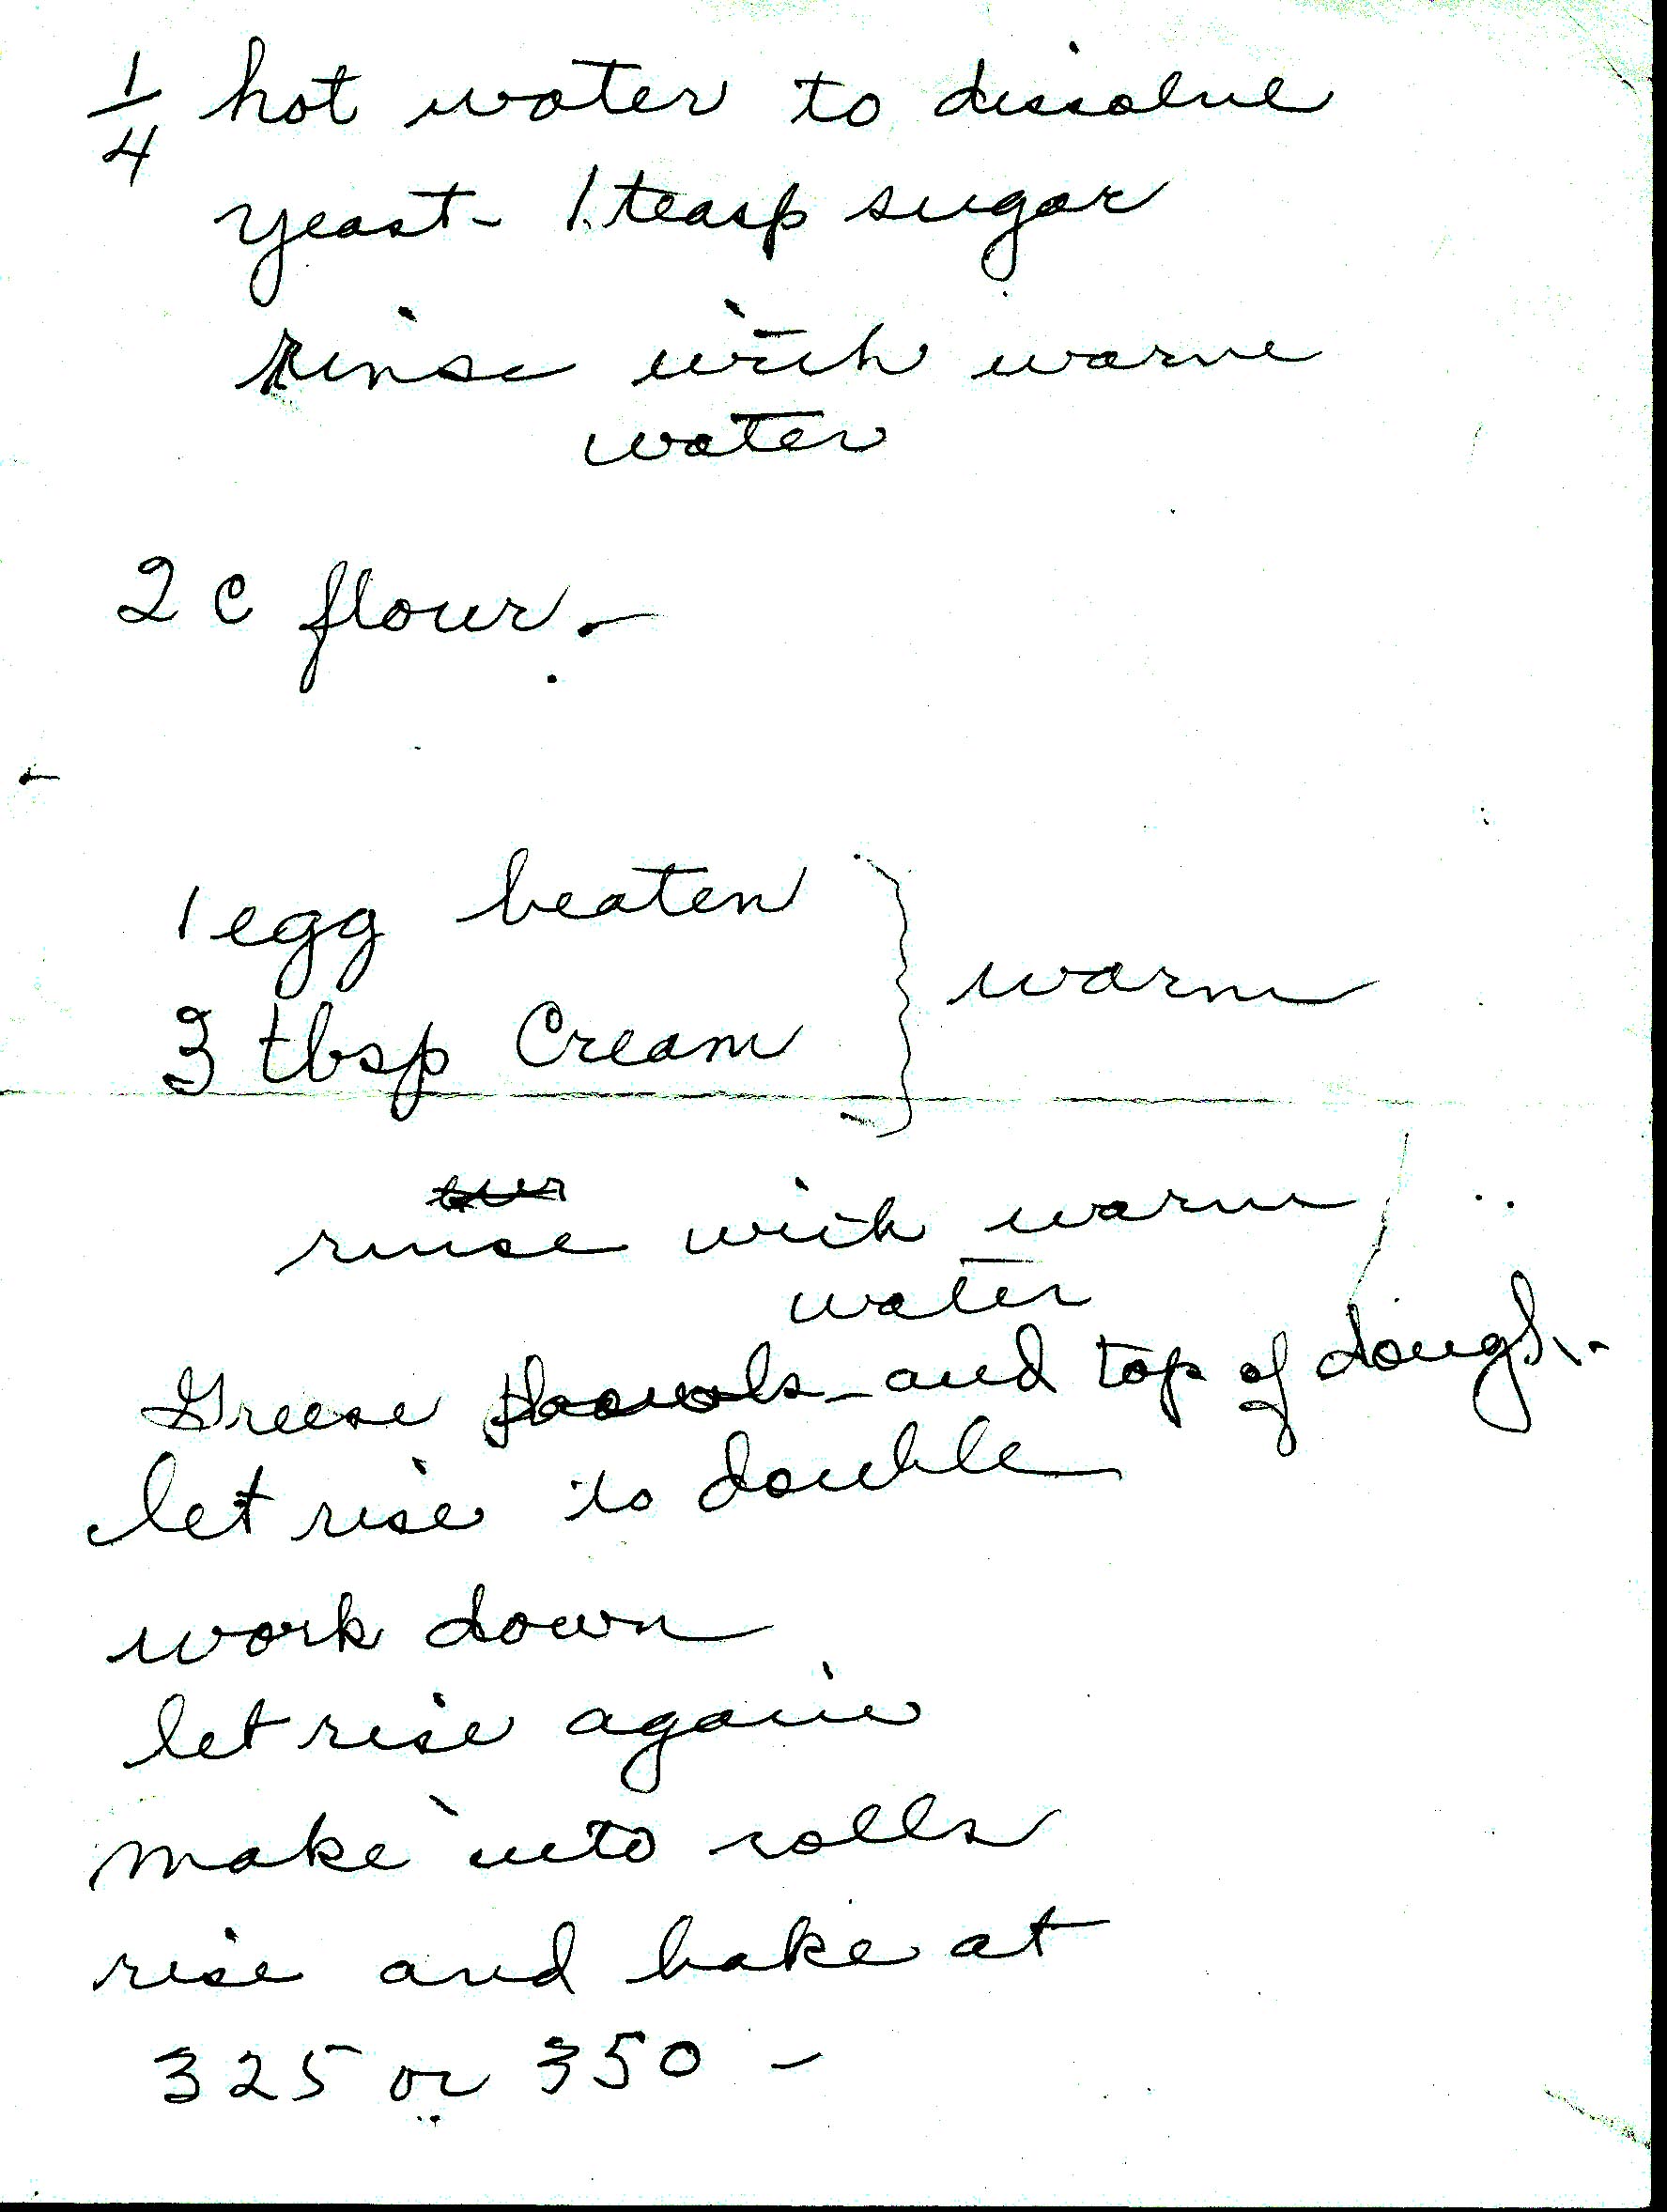 1/4 hot water to dissolve
yeast - 1 teasp sugar
rinse with warm
water
2 c flour. -
1 egg beaten
3 tbsp Cream } warm
rinse with warm
water
Grease bowls - and top of dough. -
let rise to double
work down
let rise again
make into rolls
rise and bake at
325 or 350 -